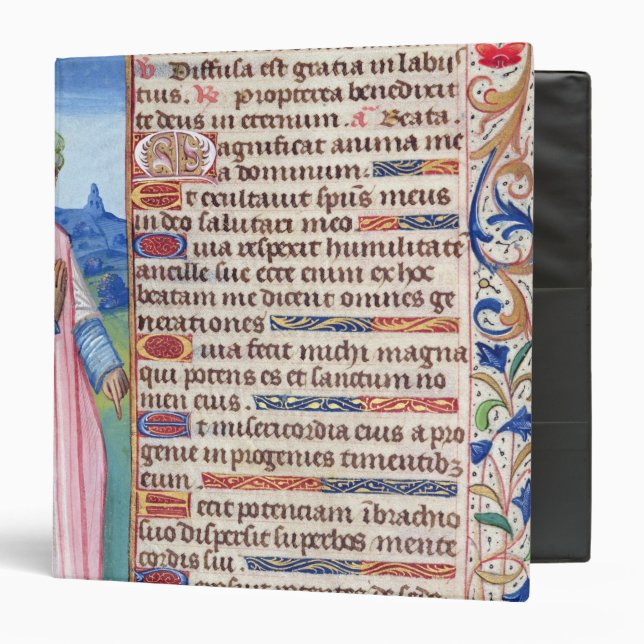 V Diffusa est gratia in labijs
tuis. R propterea benedixit
te deus in eternum a Beata.
Magnificat anima me
a dominum.
Et exultavit spūs meus
in deo salutari meo
Quia respexit humilitatē
ancille sue ecce enim ex hoc
beatam me dicent omnes ge
nerationes
Quia fecit michi magna
qui potens es et sanctum no
men eius.
Et misericordia eius a pro
genie in progenies timentibꝫ
eum.
Fecit potenciam ī brachio
suo dispersit superbos mente
cordis sui.